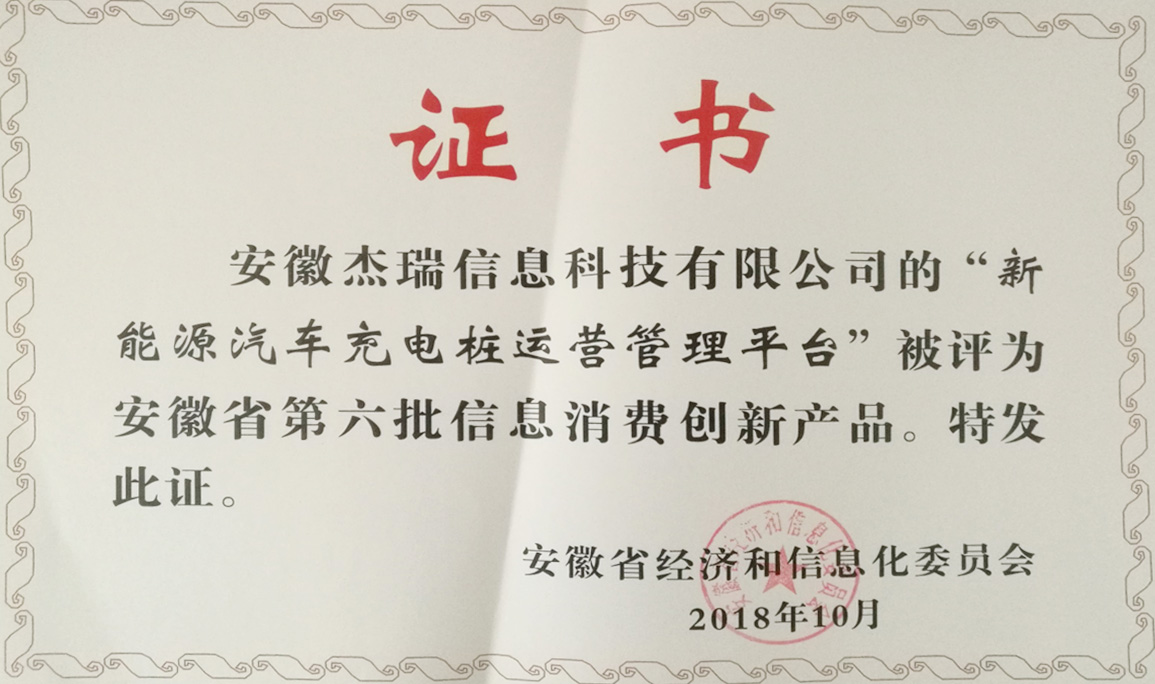 证 书
安徽杰瑞信息科技有限公司的“新
能源汽车充电桩运营管理平台”被评为
安徽省第六批信息消费创新产品。特发
此证。
安徽省经济和信息化委员会
2018年10月
安徽省经济和信息化委员会